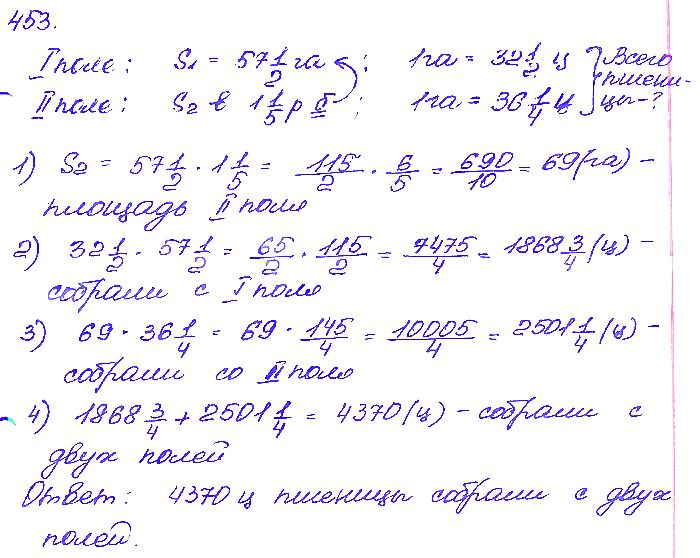 453.
I поле: S1 = 57 1/2 га ; 1га = 32 1/2 ц } Всего
II поле: S2 в 1 1/5 р б ; 1га = 36 1/4 ц } пшени-
цы-?
1) S2 = 57 1/2 · 1 1/5 = 115/2 · 6/5 = 690/10 = 69(га) -
площадь II поля
2) 32 1/2 · 57 1/2 = 65/2 · 115/2 = 7475/4 = 1868 3/4 (ц) -
собрали с I поля
3) 69 · 36 1/4 = 69 · 145/4 = 10005/4 = 2501 1/4 (ц) -
собрали со II поля
4) 1868 3/4 + 2501 1/4 = 4370(ц) - собрали с
двух полей
Ответ: 4370 ц пшеницы собрали с двух
полей.